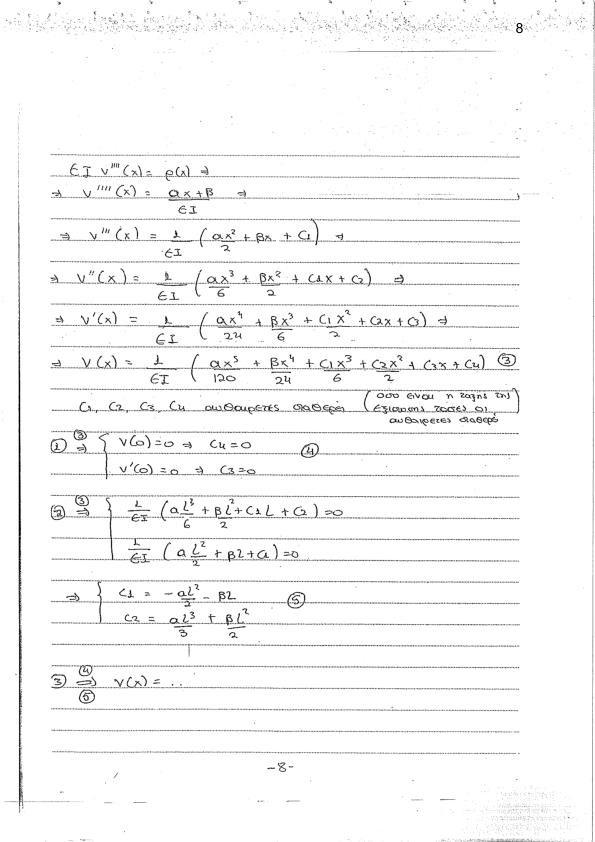 8
EI v''''(x) = ρ(x) ⇒
⇒ v''''(x) = (αx+β)/EI ⇒
⇒ v'''(x) = 1/EI (αx²/2 + βx + C1) ⇒
⇒ v''(x) = 1/EI (αx³/6 + βx²/2 + C1x + C2) ⇒
⇒ v'(x) = 1/EI (αx⁴/24 + βx³/6 + C1x²/2 + C2x + C3) ⇒
⇒ v(x) = 1/EI (αx⁵/120 + βx⁴/24 + C1x³/6 + C2x²/2 + C3x + C4) ③
C1, C2, C3, C4 αυθαιρετες σταθερές (οσο ειναι η ταξης της
εξισωσης τοσες οι
αυθαιρετες σταθερέ
① ③⇒ { v(0)=0 ⇒ C4=0 ④
v'(0)=0 ⇒ C3=0
② ③⇒ { 1/EI (αL³/6 + βL²/2 + C1L + C2) = 0
1/EI (αL²/2 + βL + C1) = 0
⇒ { C1 = -αL²/2 - βL ⑤
C2 = αL³/3 + βL²/2
③ ④⇒⑤ v(x) = ..
-8-